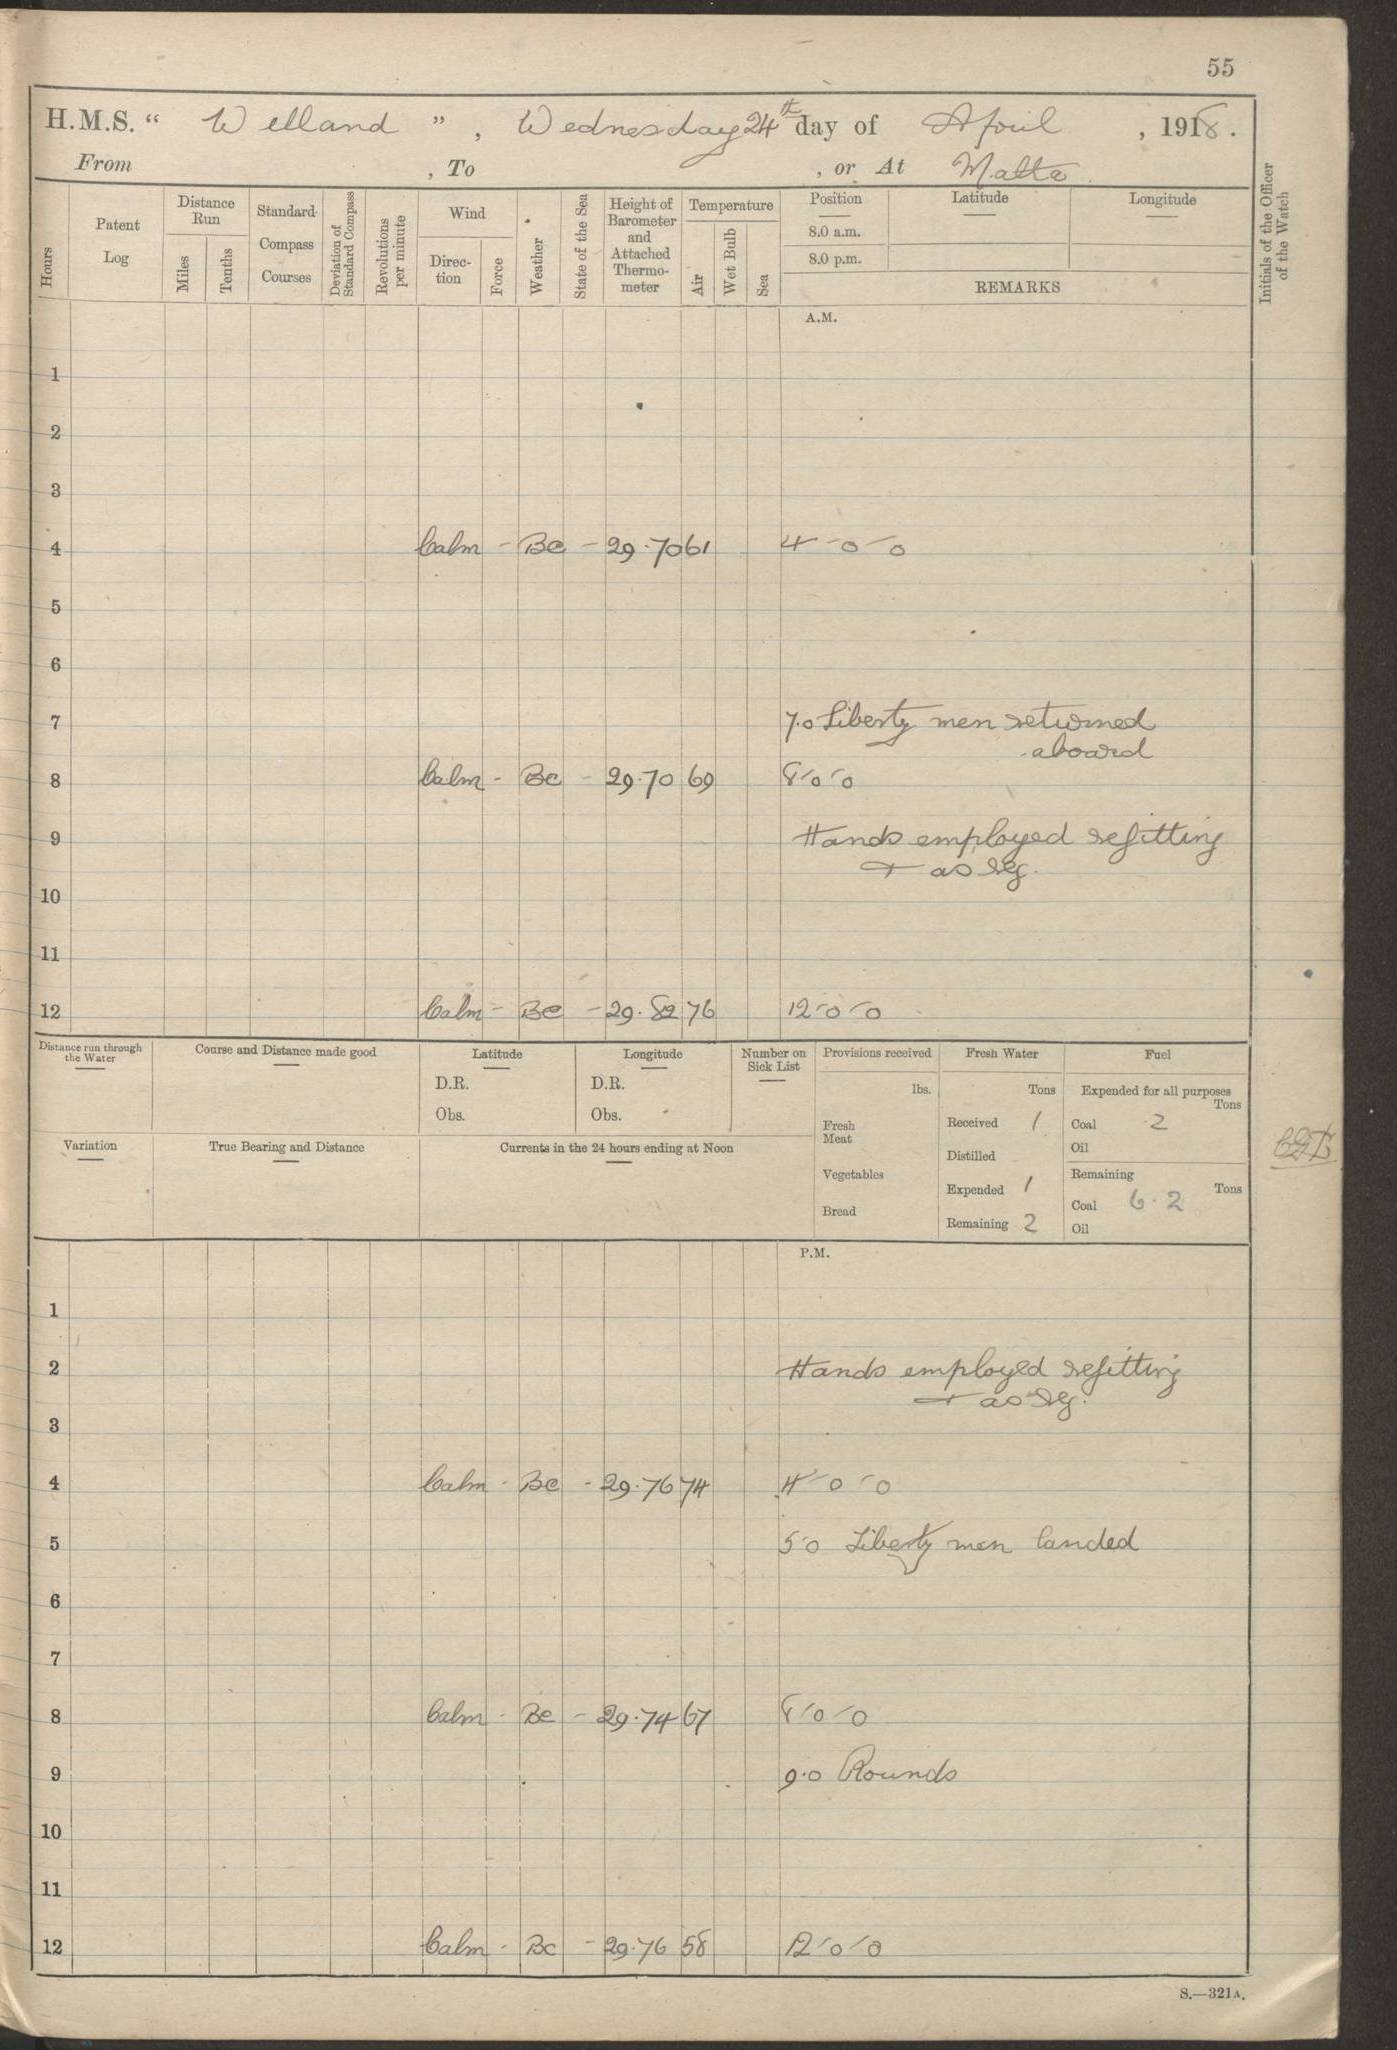 55
H.M.S. " Welland " , Wednesday 24th day of April , 1918.
From , To , or At Malta
Hours
Patent Log
Distance Run
Miles
Tenths
Standard Compass Courses
Deviation of Standard Compass
Revolutions per minute
Wind
Direction
Force
Weather
State of the Sea
Height of Barometer and Attached Thermometer
Temperature
Air
Wet Bulb
Sea
Position
8.0 a.m.
8.0 p.m.
Latitude
Longitude
REMARKS
Initials of the Officer of the Watch
A.M.
1
2
3
4 Calm - Bc - 29.70 61 4-0-0
5
6
7 7.0 Liberty men returned
aboard
8 Calm - Bc - 29.70 69 8-0-0
9 Hands employed refitting
+ as req.
10
11
12 Calm - Bc - 29.82 76 12-0-0
Distance run through the Water
Course and Distance made good
Latitude
D.R.
Obs.
Longitude
D.R.
Obs.
Number on Sick List
Provisions received
lbs.
Fresh Meat
Vegetables
Bread
Fresh Water
Tons
Received 1
Distilled
Expended 1
Remaining 2
Fuel
Expended for all purposes
Tons
Coal 2
Oil
Remaining
Tons
Coal 6.2
Oil
Variation
True Bearing and Distance
Currents in the 24 hours ending at Noon
P.M.
1
2 Hands employed refitting
+ as req.
3
4 Calm - Bc - 29.76 74 4-0-0
5 5-0 Liberty men landed
6
7
8 Calm - Bc - 29.74 67 8-0-0
9 9.0 Rounds
10
11
12 Calm - Bc - 29.76 58 12-0-0
S.—321A.